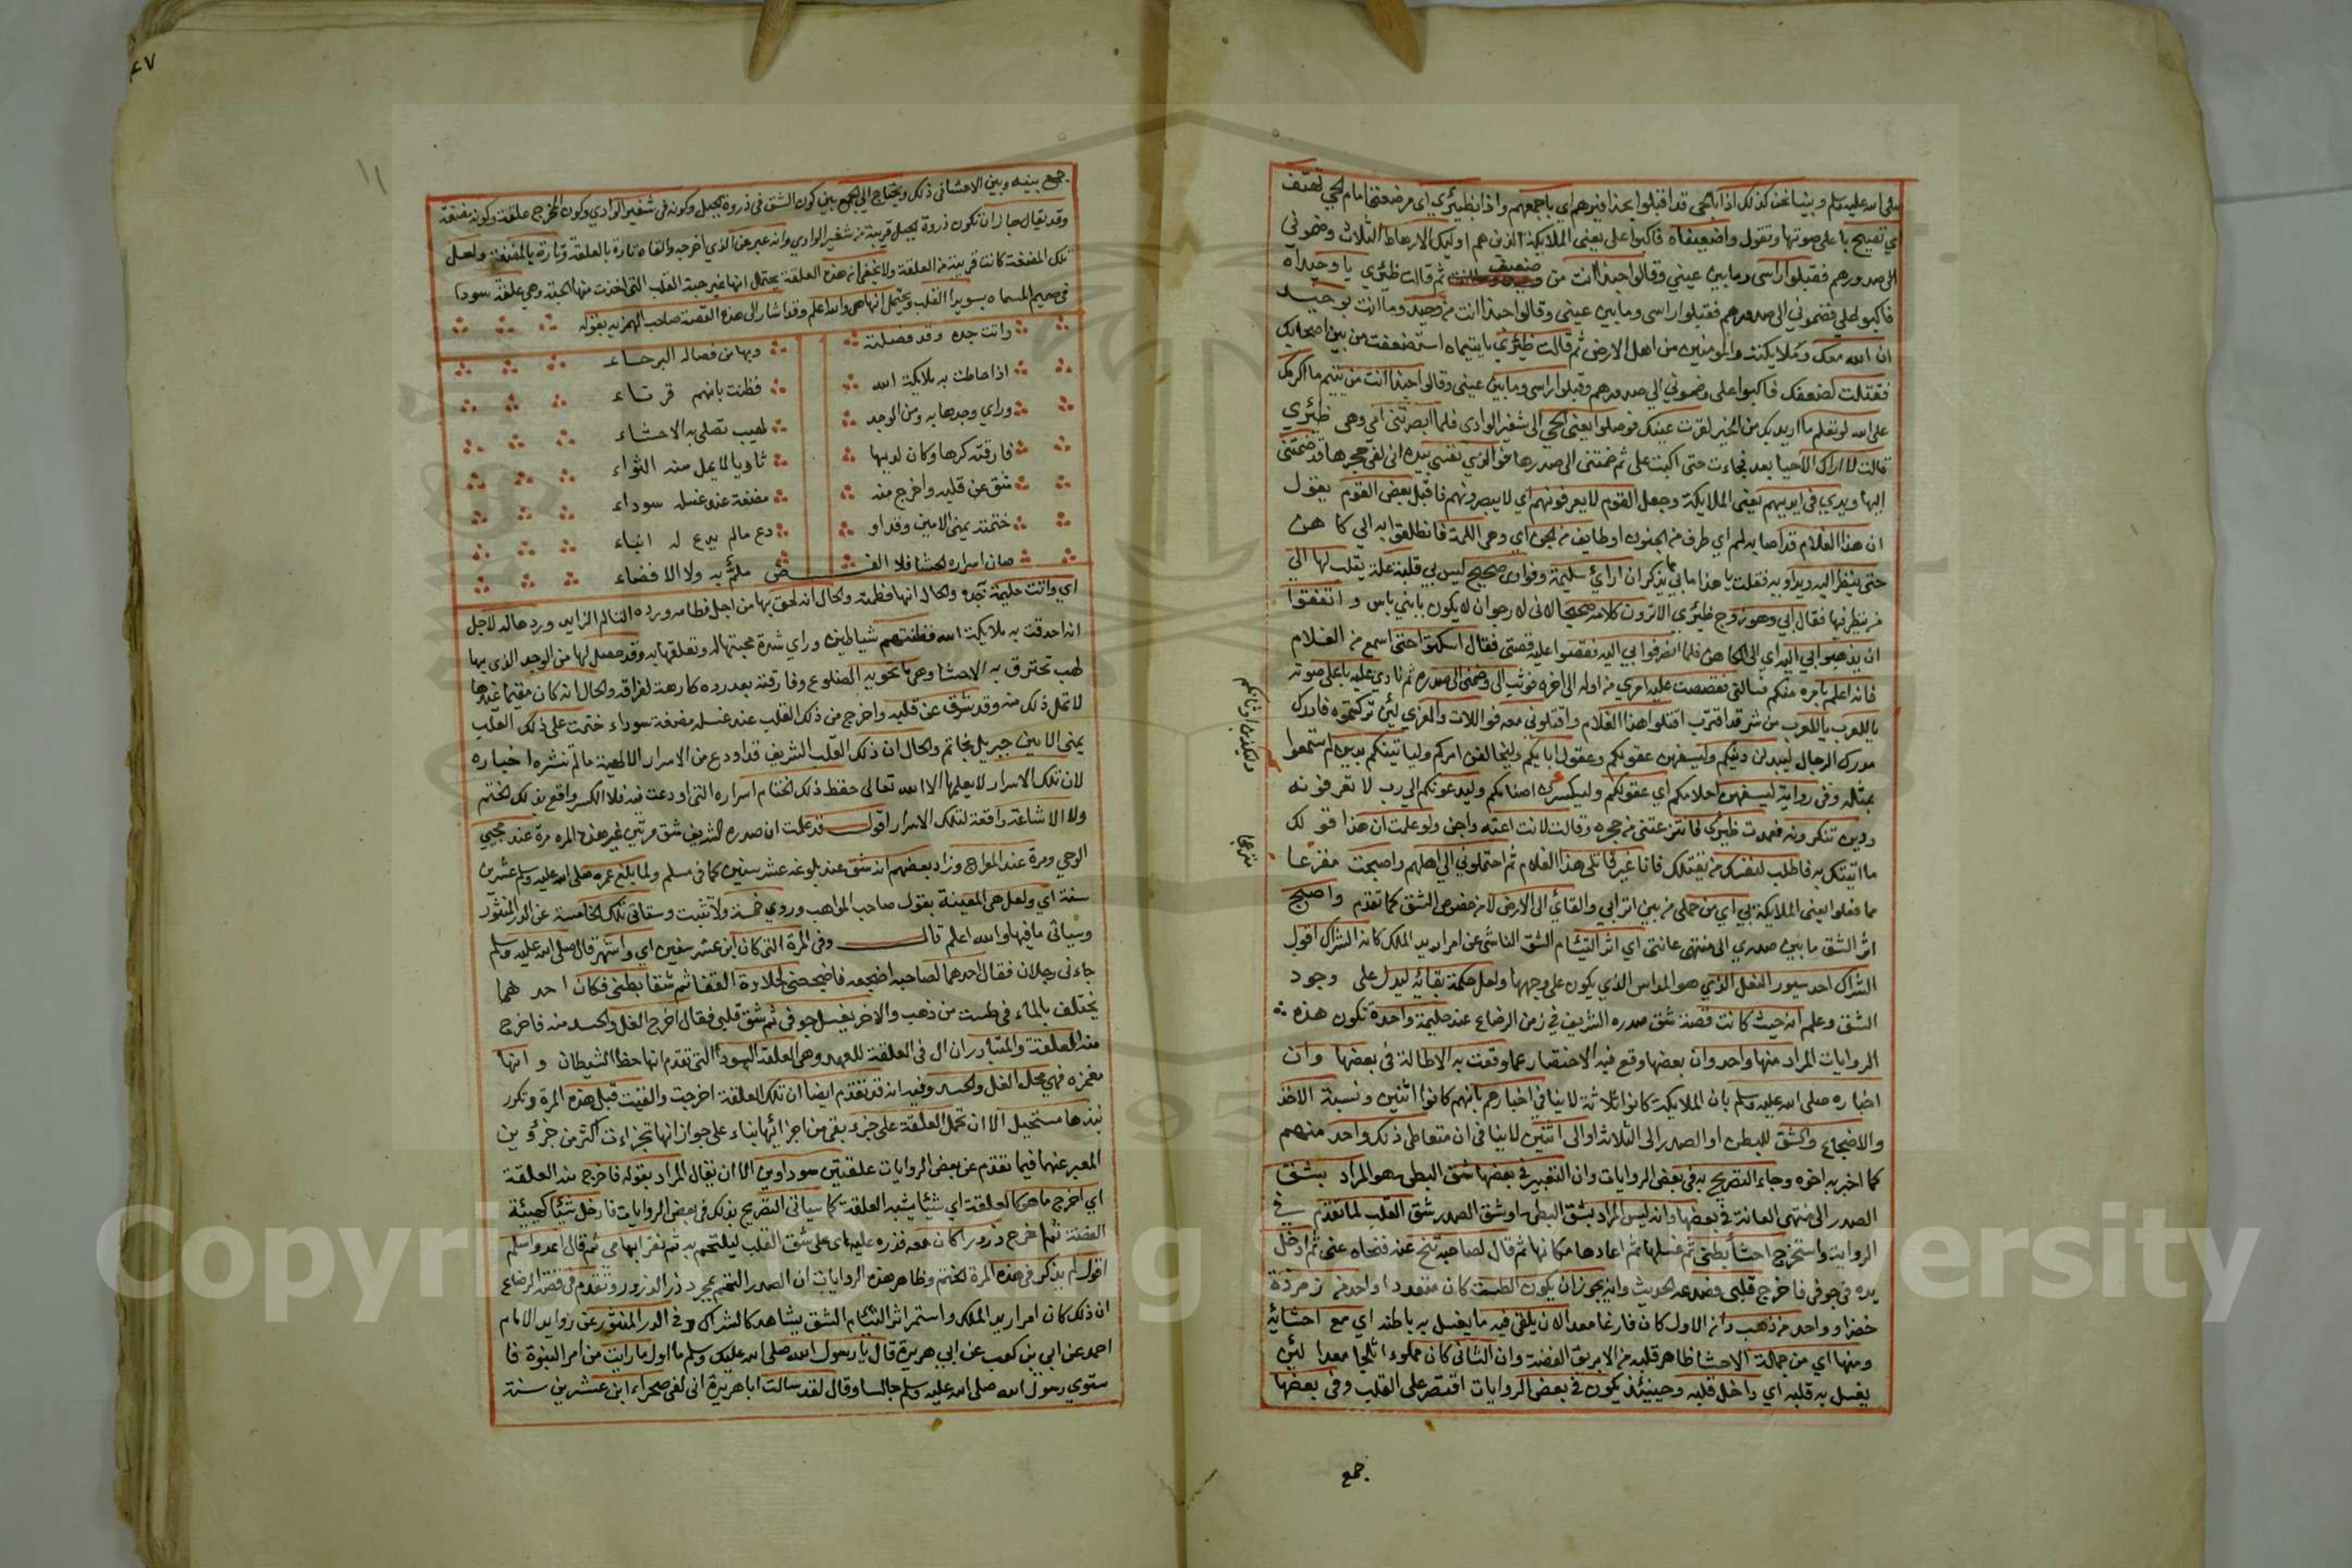 صلى الله عليه وسلم وبينا نحن كذلك اذا بالحي قد اقبلوا بحذافيرهم اي باجمعهم واذا بظئري اي مرضعتي امام الحي تهتف
اي تصيح باعلى صوتها وتقول واضعيفاه فاكبوا علي يعني الملايكة الذين هم اوليك الارهاط الثلاث وضموني
الى صدورهم فقبلوا راسي وما بين عيني وقالوا حبذا انت من ضعيف ثم قالت ظئري يا وحيداه
فاكبوا علي فضموني الى صدورهم فقبلوا راسي وما بين عيني وقالوا حبذا انت من وحيد وما انت بوحيد
ان الله معك وملايكته والمومنين من اهل الارض ثم قالت ظئري يا يتيماه استضعفت من بين اصحابك
فقتلت لضعفك فاكبوا علي وضموني الى صدورهم وقبلوا راسي وما بين عيني وقالوا حبذا انت من يتيم ما اكرمك
على الله لو تعلم ما اريد بك من الخير لقرت عينك فوصلوا يعني الحي الى شفير الوادي فلما ابصرتني امي وهي ظئري
قالت لا اراك الا حيا بعد فجاءت حتى اكبت علي ثم ضمتني الى صدرها فوالذي نفسي بيده اني لفي حجرها قد ضمتني
اليها ويدي في ايديهم يعني الملايكة وجعل القوم لا يعرفونهم اي لا يبصرونهم فاقبل بعض القوم يقول
ان هذا الغلام قد اصابه لمم اي طرف من الجنون او طايف من الجن اي وهي اللمة فانطلقوا به الى كاهن
حتى ينظر اليه ويداويه فقلت يا هذا ما بي مما يذكر ان ارائي سليمة وفوادي صحيح ليس بي قلبة علة يقلب لها الى
من ينظر فيها فقال ابي وهو زوج ظئري الا ترون كلامه صحيحا اني لارجو ان لا يكون بابني باس واتفقوا
ان يذهبوا بي اليه اي الى الكاهن فلما انصرفوا بي اليه فقصوا عليه قصتي فقال اسكتوا حتى اسمع من الغلام
فانه اعلم بامره منكم فسالني فقصصت عليه امري من اوله الى اخره فوثب الي وضمني الى صدره ثم نادي باعلى صوته
يا للعرب يا للعرب من شر قد اقترب اقتلوا هذا الغلام واقتلوني معه فواللات والعزي لئن تركتموه فادرك
مدرك الرجال ليبدلن دينكم وليسفهن عقولكم وعقول ابايكم وليخالفن امركم ولياتينكم بدين لم تسمعوا
بمثله وفي رواية ليسفهن احلامكم اي عقولكم وليكسرن اصنامكم وليدعونكم الى رب لا تعرفونه
ودين تنكرونه فعمدت ظئري فانتزعتني من حجره وقالت لانت اعته واجن ولو علمت ان هذا قولك
ما اتيتك به فاطلب لنفسك من يقتلك فانا غير قاتلي هذا الغلام ثم احتملوني الى اهلهم واصبحت مفزعا
مما فعلوا يعني الملايكة بي اي من حملي من بين اترابي والقائي الى الارض لا من خصوص الشق كما تقدم واصبح
اثر الشق ما بين صدري الى منتهى عانتي اي اثر التيثام الشق الناشي عن امرار يد الملك كانه الشراك اقول
الشراك احد سيور النعل الذي هو المداس الذي يكون على وجهها ولعل حكمة بقائه ليدل على وجود
الشق وعلم انه حيث كانت قصة شق صدره الشريف في زمن الرضاع عند حليمة واحدة تكون هذه
الروايات المراد منها واحد وان بعضها وقع فيه الاختصار عما وقعت به الاطالة في بعضها وان
اخباره صلى الله عليه وسلم بان الملايكة كانوا ثلاثة لا ينافي اخبارهم بانهم كانوا اثنين ونسبة الاخذ
والاضجاع والشق للبطن او الصدر الى الثلاثة او الى اثنين لا ينافي ان متعاطي ذلك واحد منهم
كما اخبر به اخوه وجاء التصريح به في بعض الروايات وان التعبير في بعضها شق البطن هو المراد بشق
الصدر الى منتهى العانة في بعضها وانه ليس المراد بشق البطن او شق الصدر شق القلب لما تقدم في
الرواية واستخرج احشأ بطني ثم غسلها ثم اعادها مكانها ثم قال لصاحبه تنح عنه فنحاه عني ثم ادخل
يده في جوفي فاخرج قلبي فصدعه الحديث وانه يجوز ان يكون الطست كان متعددا واحد من زمرذة
خضرا وواحد من ذهب وانه الاول كان فارغا معدا لان يلقي فيه ما يغسل به باطنه اي مع احشائه
ومنها اي من جملة الاحشا ظاهر قلبه من الابريق الفضة وان الثاني كان مملوءا ثلجا معدا لئن
يغسل به قلبه اي داخل قلبه وحينئذ يكون في بعض الروايات اقتصر على القلب وفي بعضها
وليكذبن اوثانكم
جمع
٤٧
١١
جمع بينه وبين الاحشا في ذلك ويحتاج الى الجمع بين كون الشق في ذروة الجبل وكونه في شفير الوادي وكون المخرج علقة وكونه مضغة
وقد يقال جاز ان تكون ذروة الجبل قريبة من شفير الوادي وانه عبر عن الذي اخرجه والقاه تارة بالعلقة وتارة بالمضغة ولعل
تلك المضغة كانت قريبة من العلقة ولا يخفى ان هذه العلقة يحتمل انها غير حبة القلب التي اخذت منها المحبة وهي علقة سودا
في صميم المسماه بسويدا القلب ويحتمل انها هي والله اعلم وقد اشار الى هذه القصة صاحب الهمزية بقوله
واتت جده وقد فصلته وبها من فصاله البرحاء
اذا حاطت به ملايكة الله فظنت بانهم قرناء
وراي وجدها به ومن الوجد لهيب تصلي به الاحشاء
فارقته كرها وكان لديها ثاويا لا يمل منه الثواء
شق عن قلبه واخرج منه مضغة عند غسله سوداء
ختمته يمنى الامين وقد او دع ما لم يذع له انباء
صان اسراره الختام فلا الفض ملم به ولا الافضاء
اي واتت حليمة جده والحال انها فطمته والحال انه لحق بها من اجل فطامه ورده التالم الزايد وردها له لاجل
انه احدقت به ملايكة الله فظنتهم شياطين وراي شدة محبتها له وتعلقها به وقد حصل لها من الوجد الذي بها
لهب تحترق به الاحشا وهي ما تحويه الضلوع وفارقته بعد رده كارهة لفراقه والحال انه كان مقيما عندها
لا تمل ذلك منه وقد شق عن قلبه واخرج من ذلك القلب عند غسله مضغة سوداء ختمت على ذلك القلب
يمنى الامين جبريل بخاتم والحال ان ذلك القلب الشريف قد اودع من الاسرار الالهية ما لم تنشره اخباره
لان تلك الاسرار لا يعلمها الا الله تعالى حفظ ذلك الختام اسراره التي اودعت فيه فلا الكسر واقع بذلك الختم
ولا الاشاعة واقعة لتلك الاسرار اقول قد علمت ان صدره الشريف شق مرتين غير هذه المره مرة عند مجيي
الوحي ومرة عند المعراج وزاد بعضهم انه شق عند بلوغه عشر سنين كما في مسلم ولما بلغ عمره صلى الله عليه وسلم عشرين
سنة اي ولعل هي المعينة بقول صاحب المواهب وروي خمسة ولا تثبت وستاتي تلك الخامسة عن الدر المنثور
وسياتي ما فيها والله اعلم قال وفي المرة التي كان ابن عشر سنين اي واشهر قال صلى الله عليه وسلم
جاءني رجلان فقال احدهما لصاحبه اضجعه فاضجعني لحلاوة القفا ثم شقا بطني فكان احدهما
يختلف بالماء في طست من ذهب والاخر يغسل جوفي ثم شق قلبي فقال اخرج الغل والحسد منه فاخرج
منه العلقة والمتبادر ان ال في العلقة للعهد وهي العلقة السودا التي تقدم انها حظ الشيطان وانها
مغمزه فهي محل الغل والحسد وفيه انه قد تقدم ايضا ان تلك العلقة اخرجت والقيت قبل هذه المرة وتكرر
نبذها مستحيل الا ان تحمل العلقة على جزء بقي من اجزائها بناء على جواز انها تجزات اكثر من جزئين
المعبر عنهما فيما تقدم عن بعض الروايات علقتين سوداوين الا ان يقال المراد بقوله فاخرج منه العلقة
اي اخرج ما هو كالعلقة اي شئيا يشبه العلقة كما سياتي التصريح بذلك في بعض الروايات فادخل شئيا كهيئة
الفضة ثم اخرج ذرورا كان معه فذره عليه اي على شق القلب ليلتحم به ثم نقر ابهامي ثم قال اغد واسلم
اقول لم يذكر في هذه المرة الختم وظاهر هذه الروايات ان الصدر التحم بمجرد ذر الذرور وتقدم في قصة الرضاع
ان ذلك كان امرار يد الملك واستمر اثر التئام الشق يشاهد كالشراك وفي الدر المنثور عن زوايد الامام
احمد عن ابي بن كعب عن ابي هريرة قال يا رسول الله صلى الله عليك وسلم ما اول ما رايت من امر النبوة فا
ستوي رسول الله صلى الله عليه وسلم جالسا وقال لقد سالت ابا هريرة اني لفي صحراء ابن عشرين سنة
Copyright © King Saud University